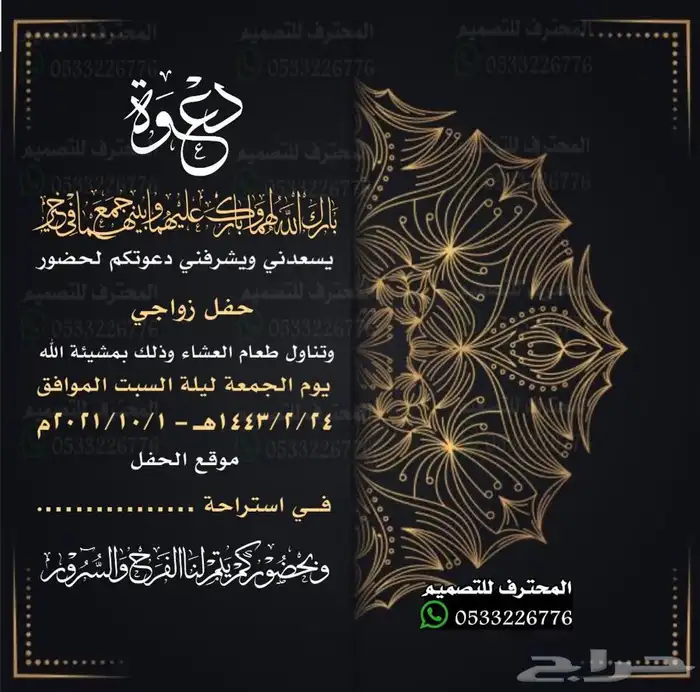 دعوة
بارك الله لهما وبارك عليهما وجمع بينهما في خير
يسعدني ويشرفني دعوتكم لحضور
حفل زواجي
وتناول طعام العشاء وذلك بمشيئة الله
يوم الجمعة ليلة السبت الموافق
١٤٤٣/٢/٢٤هـ - ٢٠٢١/١٠/١م
موقع الحفل
في استراحة ................
وبحضوركم يتم لنا الفرح والسرور
المحترف للتصميم
0533226776
حراج